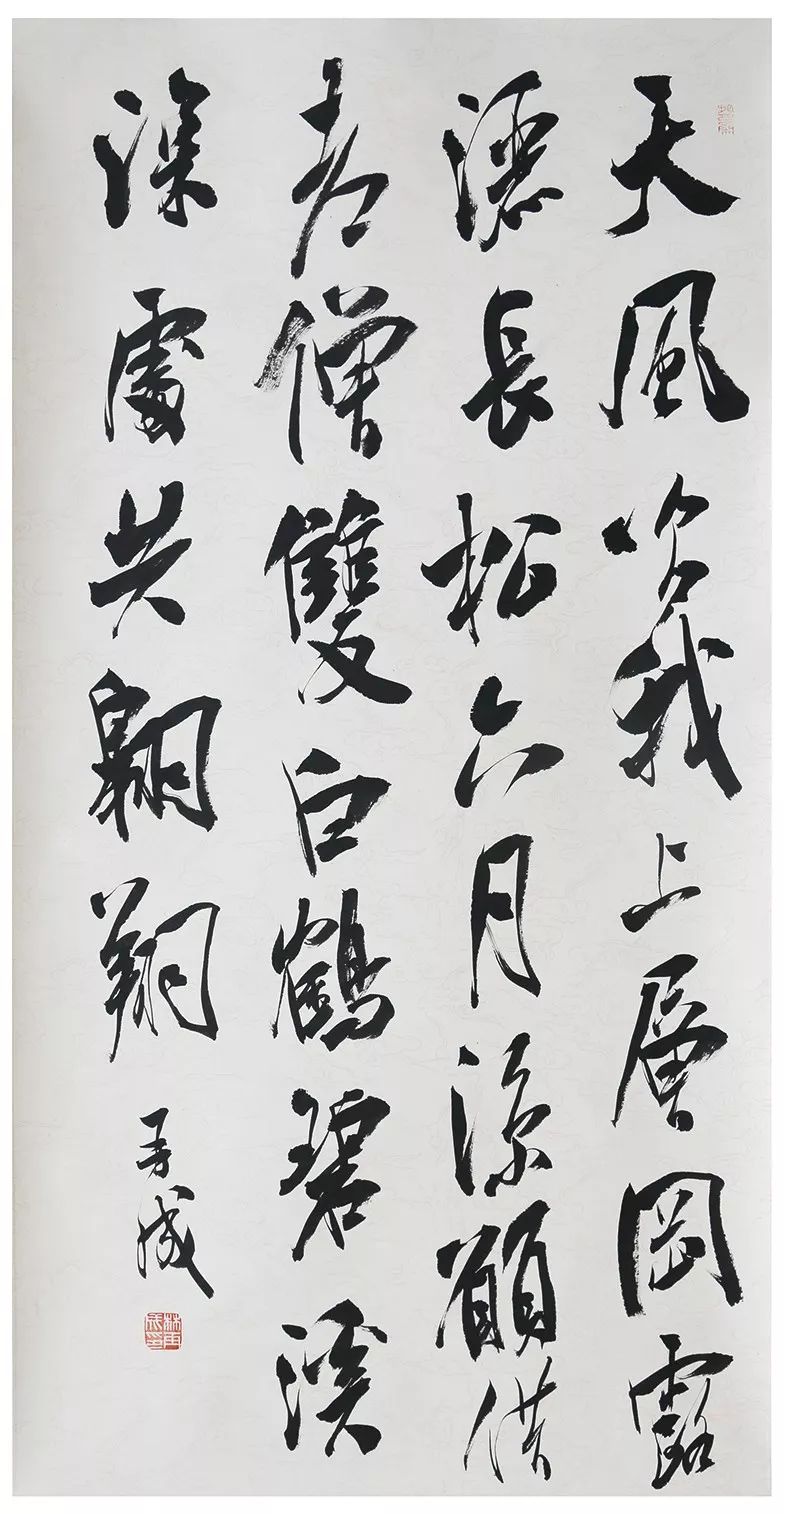 天風吹我上層岡露
灑長松六月涼願借
老僧雙白鶴碧溪
深處共翱翔
再成